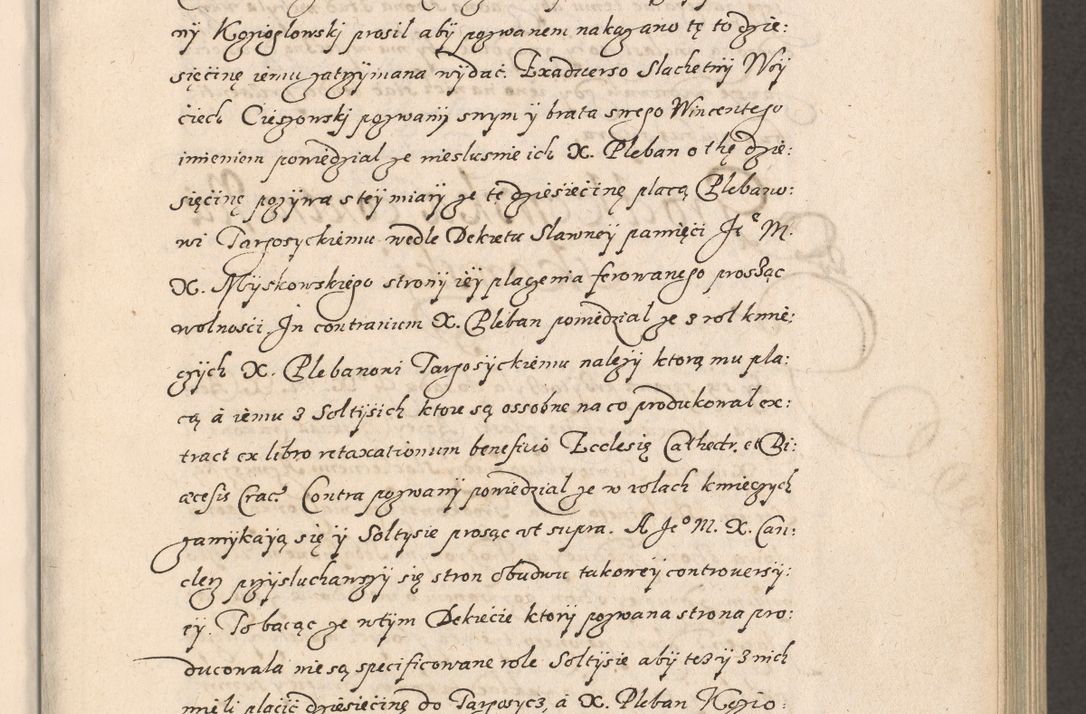 ny Koźiegłowski prosił aby pozwanem nakazano tę to dzie:
sięcinę iemu zatrzymana wydać. Exadwerso Slachetny Woy
ciech Cieszowski pozwany swym y brata swego Wincentego
imieniem powiedział że niesłusnie ich X. Pleban o thę dzie:
sięcinę pozywa s tey miary że tę dziesiećinę płacą Plebano:
wi Targosyckiemu wedle Dekretu Sławney pamięći Je° M.
X. Myskowskiego strony iey płaczenia ferowanego prosząc
wolnosci. In contrarium X. Pleban powiedział że z rol kmie:
czych X. Plebanowi Targosyckiemu należy ktorą mu pła:
cą à iemu z Sołtysich ktore są ossobne na co produkował ex:
tract ex libro retaxationum beneficio Ecclesię Cathedr. et Di:
æcesis Crac. Contra pozwany powiedział że w rolach kmieczych
zamykaią się y Sołtysie prosąc vt supra. A Je° M. X. Can:
clerz przysłuchawszy się stron obudwu takowey controuersy:
ey. To bacąc że w tym Dekrećie ktory pozwana strona pro:
ducowała nie są specificowane role Sołtysie aby też y z nich
mieli płacić dziesiećinę do Targosycz, à X. Pleban